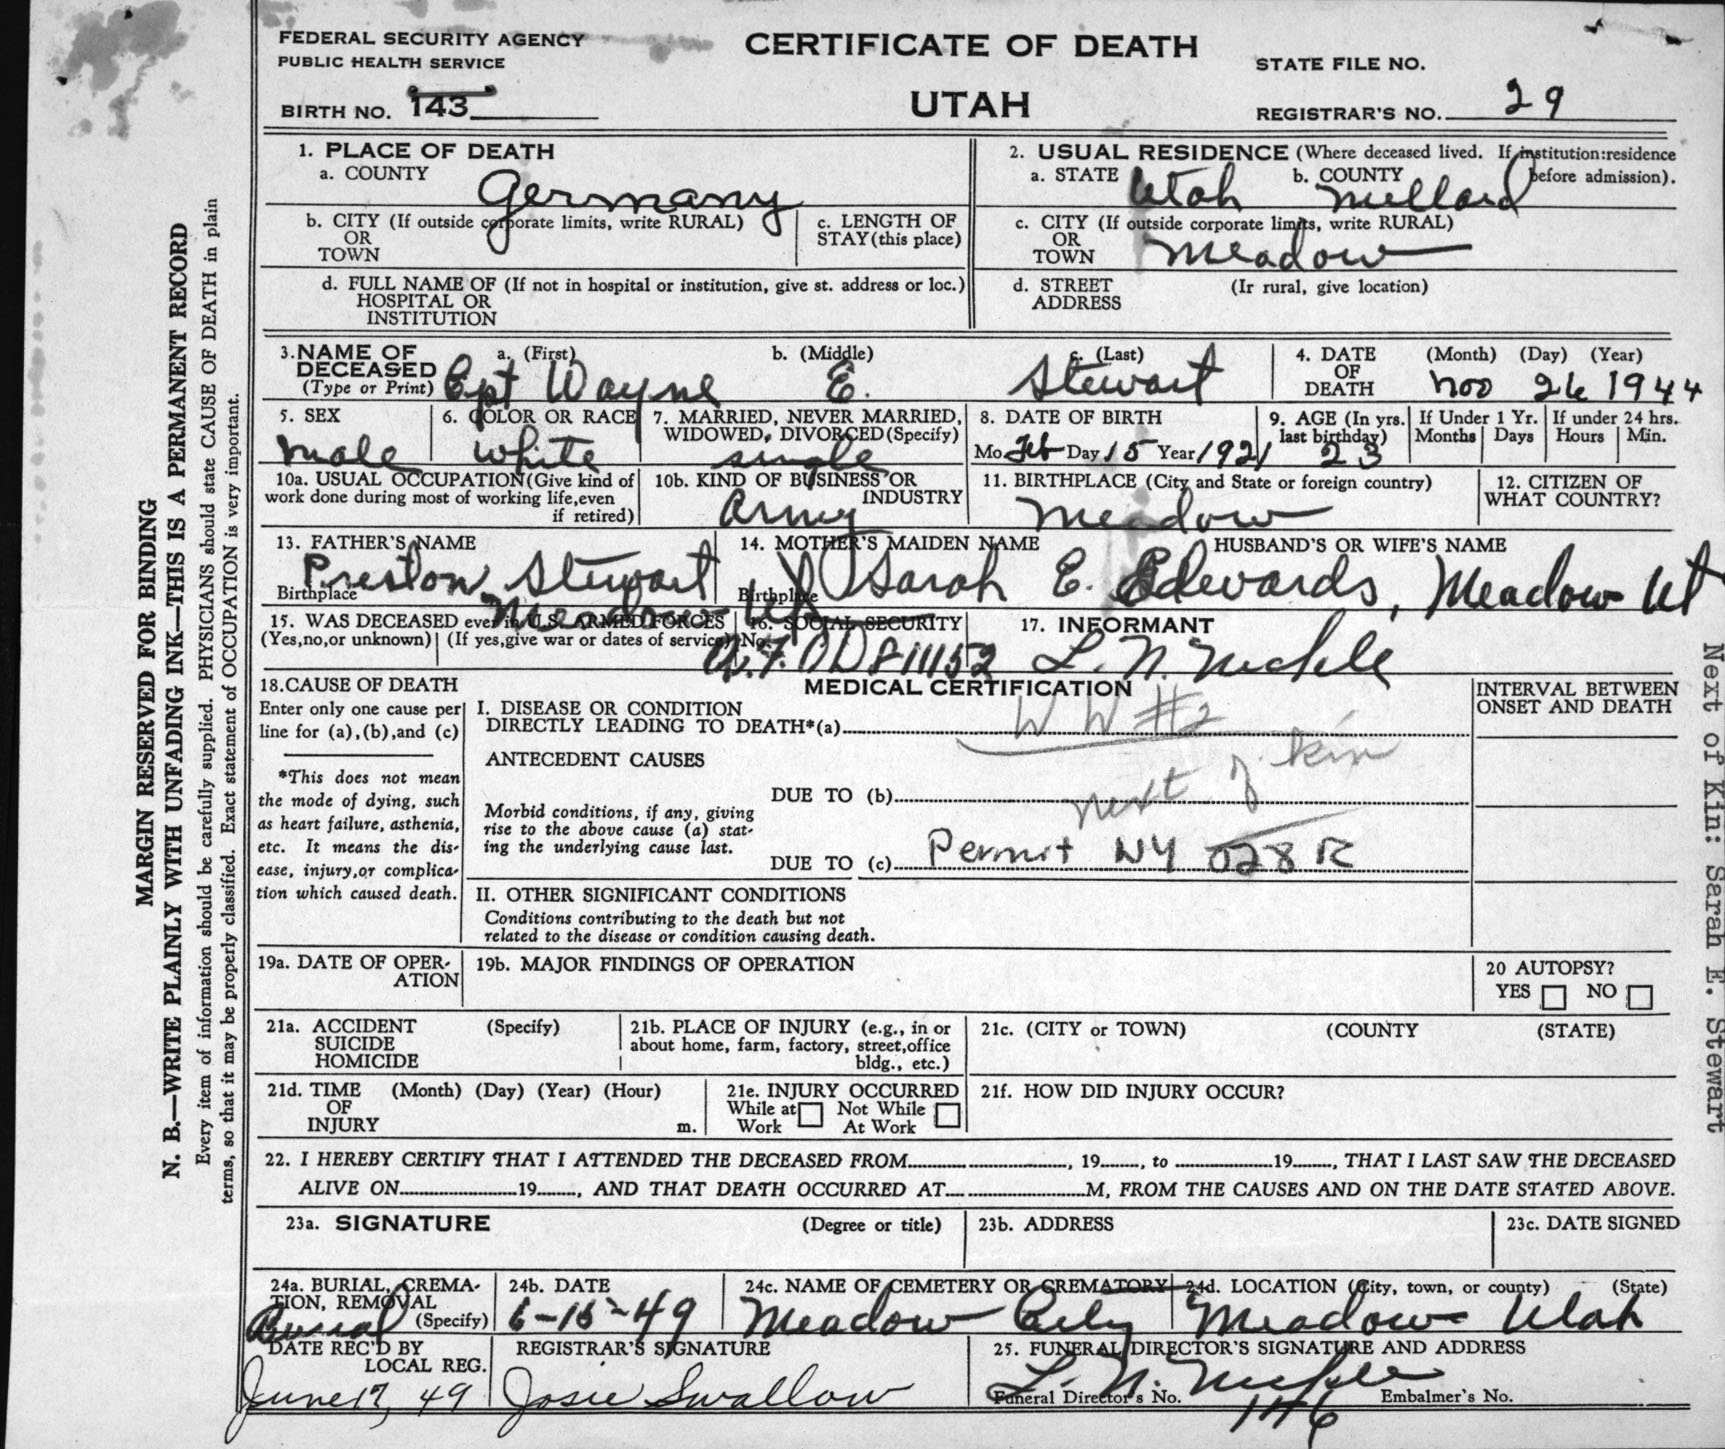 FEDERAL SECURITY AGENCY
PUBLIC HEALTH SERVICE
BIRTH NO. 143
CERTIFICATE OF DEATH
UTAH
STATE FILE NO.
REGISTRAR'S NO. 29
MARGIN RESERVED FOR BINDING
N. B.—WRITE PLAINLY WITH UNFADING INK—THIS IS A PERMANENT RECORD
Every item of information should be carefully supplied. PHYSICIANS should state CAUSE OF DEATH in plain
terms, so that it may be properly classified. Exact statement of OCCUPATION is very important.
1. PLACE OF DEATH
a. COUNTY
Germany
b. CITY (If outside corporate limits, write RURAL)
OR
TOWN
c. LENGTH OF
STAY (this place)
d. FULL NAME OF (If not in hospital or institution, give st. address or loc.)
HOSPITAL OR
INSTITUTION
2. USUAL RESIDENCE (Where deceased lived. If institution:residence
before admission).
a. STATE Utah b. COUNTY Millard
c. CITY (If outside corporate limits, write RURAL)
OR
TOWN Meadow
d. STREET (Ir rural, give location)
ADDRESS
3. NAME OF DECEASED
(Type or Print)
a. (First) b. (Middle) c. (Last)
Cpt Wayne E. Stewart
4. DATE OF DEATH (Month) (Day) (Year)
Nov 26 1944
5. SEX
male
6. COLOR OR RACE
white
7. MARRIED, NEVER MARRIED,
WIDOWED, DIVORCED (Specify)
single
8. DATE OF BIRTH
Mo. Feb Day 15 Year 1921
9. AGE (In yrs.
last birthday)
23
If Under 1 Yr.
Months Days
If under 24 hrs.
Hours Min.
10a. USUAL OCCUPATION (Give kind of
work done during most of working life, even
if retired)
10b. KIND OF BUSINESS OR
INDUSTRY
Army
11. BIRTHPLACE (City and State or foreign country)
Meadow
12. CITIZEN OF
WHAT COUNTRY?
13. FATHER'S NAME
Preston Stewart
Birthplace Meadow Ut
14. MOTHER'S MAIDEN NAME HUSBAND'S OR WIFE'S NAME
Sarah E. Edwards, Meadow Ut
Birthplace
15. WAS DECEASED ever in U.S. ARMED FORCES
(Yes, no, or unknown) (If yes, give war or dates of service)
16. SOCIAL SECURITY
No.
811152
17. INFORMANT
18. CAUSE OF DEATH
Enter only one cause per
line for (a), (b), and (c)
*This does not mean
the mode of dying, such
as heart failure, asthenia,
etc. It means the dis-
ease, injury, or complica-
tion which caused death.
MEDICAL CERTIFICATION
I. DISEASE OR CONDITION
DIRECTLY LEADING TO DEATH*(a)
WW #2
ANTECEDENT CAUSES
next of kin
DUE TO (b)
Morbid conditions, if any, giving
rise to the above cause (a) stat-
ing the underlying cause last.
DUE TO (c) Permit NY 028 R
INTERVAL BETWEEN
ONSET AND DEATH
II. OTHER SIGNIFICANT CONDITIONS
Conditions contributing to the death but not
related to the disease or condition causing death.
19a. DATE OF OPER-
ATION
19b. MAJOR FINDINGS OF OPERATION
20 AUTOPSY?
YES NO
21a. ACCIDENT (Specify)
SUICIDE
HOMICIDE
21b. PLACE OF INJURY (e.g., in or
about home, farm, factory, street, office
bldg., etc.)
21c. (CITY or TOWN) (COUNTY (STATE)
21d. TIME (Month) (Day) (Year) (Hour)
OF
INJURY m.
21e. INJURY OCCURRED
While at Work Not While At Work
21f. HOW DID INJURY OCCUR?
22. I HEREBY CERTIFY THAT I ATTENDED THE DECEASED FROM , 19 , to 19 , THAT I LAST SAW THE DECEASED
ALIVE ON 19 , AND THAT DEATH OCCURRED AT M, FROM THE CAUSES AND ON THE DATE STATED ABOVE.
23a. SIGNATURE (Degree or title)
23b. ADDRESS
23c. DATE SIGNED
24a. BURIAL, CREMA-
TION, REMOVAL
(Specify)
Burial
24b. DATE
6-15-49
24c. NAME OF CEMETERY OR CREMATORY
Meadow City
24d. LOCATION (City, town, or county) (State)
Meadow Utah
DATE REC'D BY
LOCAL REG.
June 17, 49
REGISTRAR'S SIGNATURE
Josie Swallow
25. FUNERAL DIRECTOR'S SIGNATURE AND ADDRESS
Funeral Director's No. 146
Embalmer's No.
Next of Kin: Sarah E. Stewart